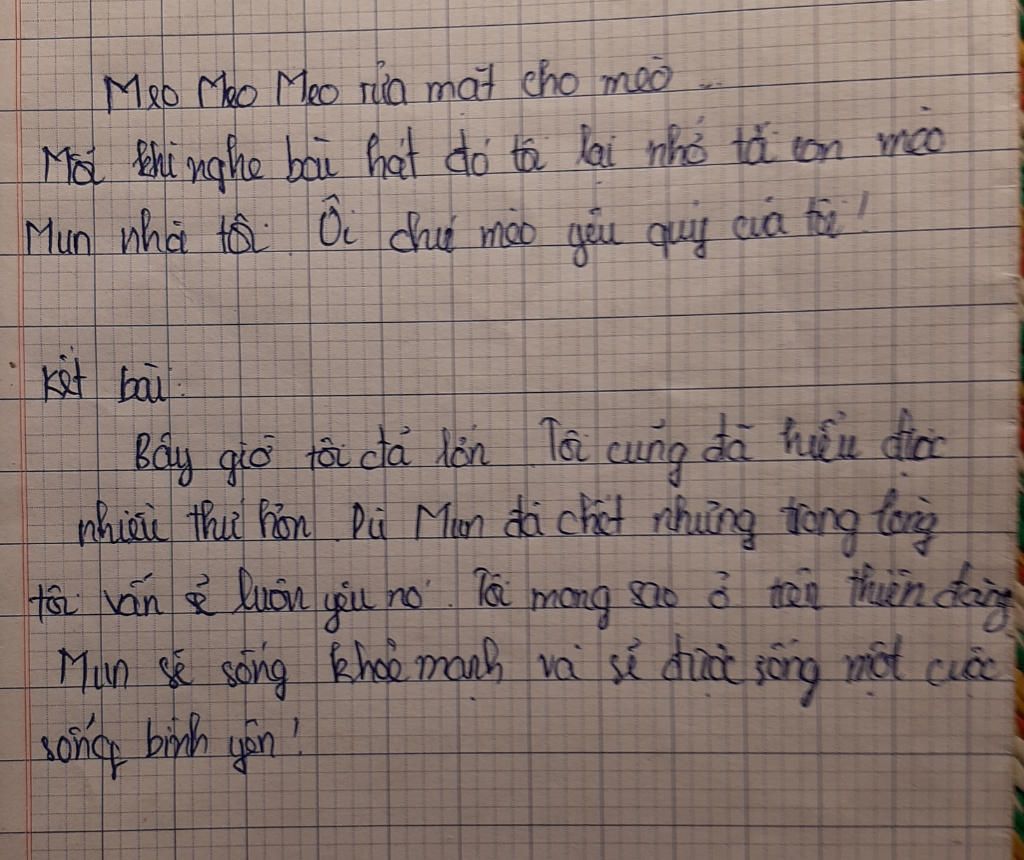 Meo Meo Meo rửa mặt cho mèo ...
Mỗi khi nghe bài hát đó tôi lại nhớ tới con mèo
Mun nhà tôi. Ôi chú mèo yêu quý của tôi!
Kết bài:
Bây giờ tôi đã lớn. Tôi cũng đã hiểu được
nhiều thứ hơn. Dù Mun đã chết nhưng trong lòng
tôi vẫn sẽ luôn yêu nó. Tôi mong sao ở trên thiên đàng
Mun sẽ sống khoẻ mạnh và sẽ được sống một cuộc
sống bình yên!